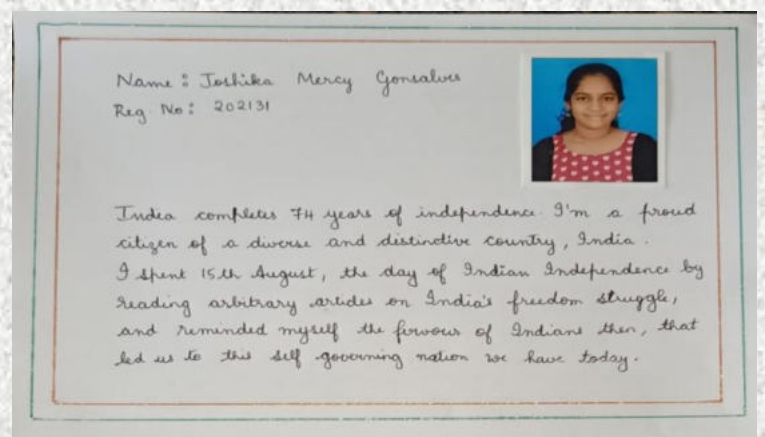 Name : Joshika Mercy Gonsalves
Reg. No : 202131
India completes 74 years of independence. I'm a proud
citizen of a diverse and distinctive country, India.
I spent 15th August, the day of Indian Independence by
reading arbitrary articles on India's freedom struggle,
and reminded myself the fervour of Indians then, that
led us to this self governing nation we have today.